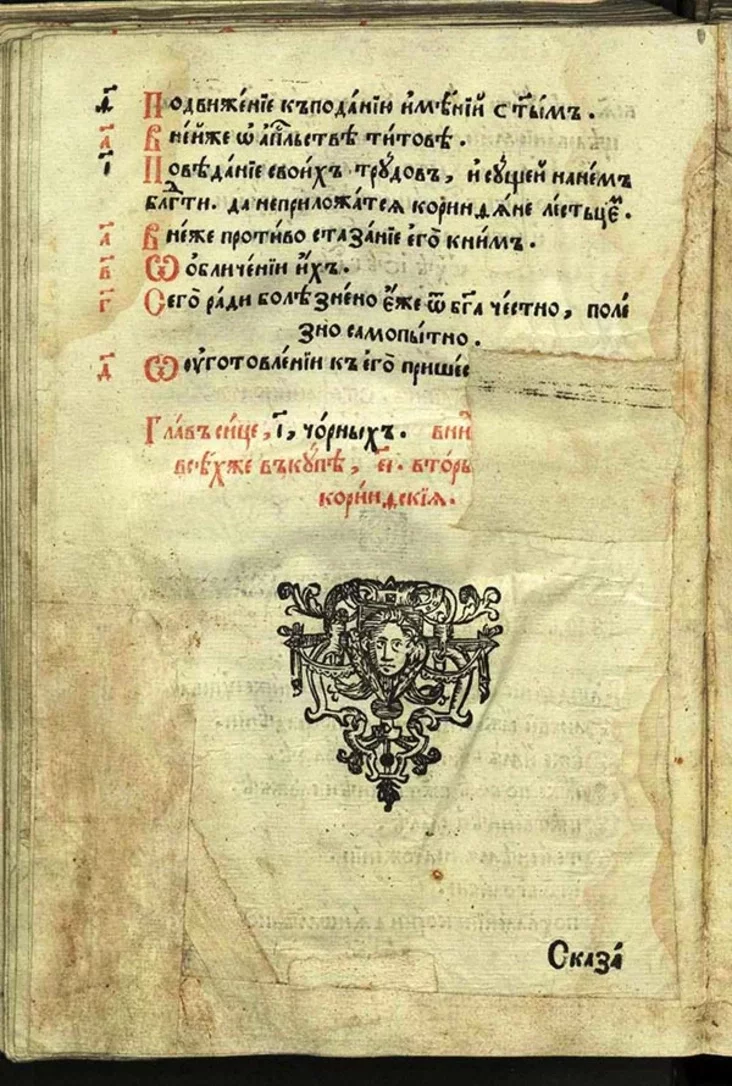 ѳ҃ Подвиже́нїе къпода́нїю имѣ́нїй с҃ты́мъ.
а҃ Вне́йже ѡ҆ а҆пⷭ҇льствѣ ти́товѣ.
і҃ Повѣ́данїе свои́хъ трꙋдо́въ, и҆ сꙋ́щей нане́мъ
блгⷣти. да неприложа́тся корин́ѳѧне ле́стьцеⷨ.
а҃ Вне́же проти́во стѧза́нїе є҆гѡ̀ кни́мъ.
в҃ Ѡ҆бличе́нїи и҆́хъ.
г҃ Сегѡ̀ ра́ди болѣ́знено є҆́же ѿ бг҃а че́стно, поле́
зно самопы́тно.
д҃ Ѡ҆ᲂу҆гото́вленїи къ є҆гѡ̀ прише́
Гла́въ си́це, і҃, чо́рныхъ. вни́
всѣ́хже въкꙋ́пѣ, и҃і. вто́ры
кори́нѳскїѧ.
Сказа́